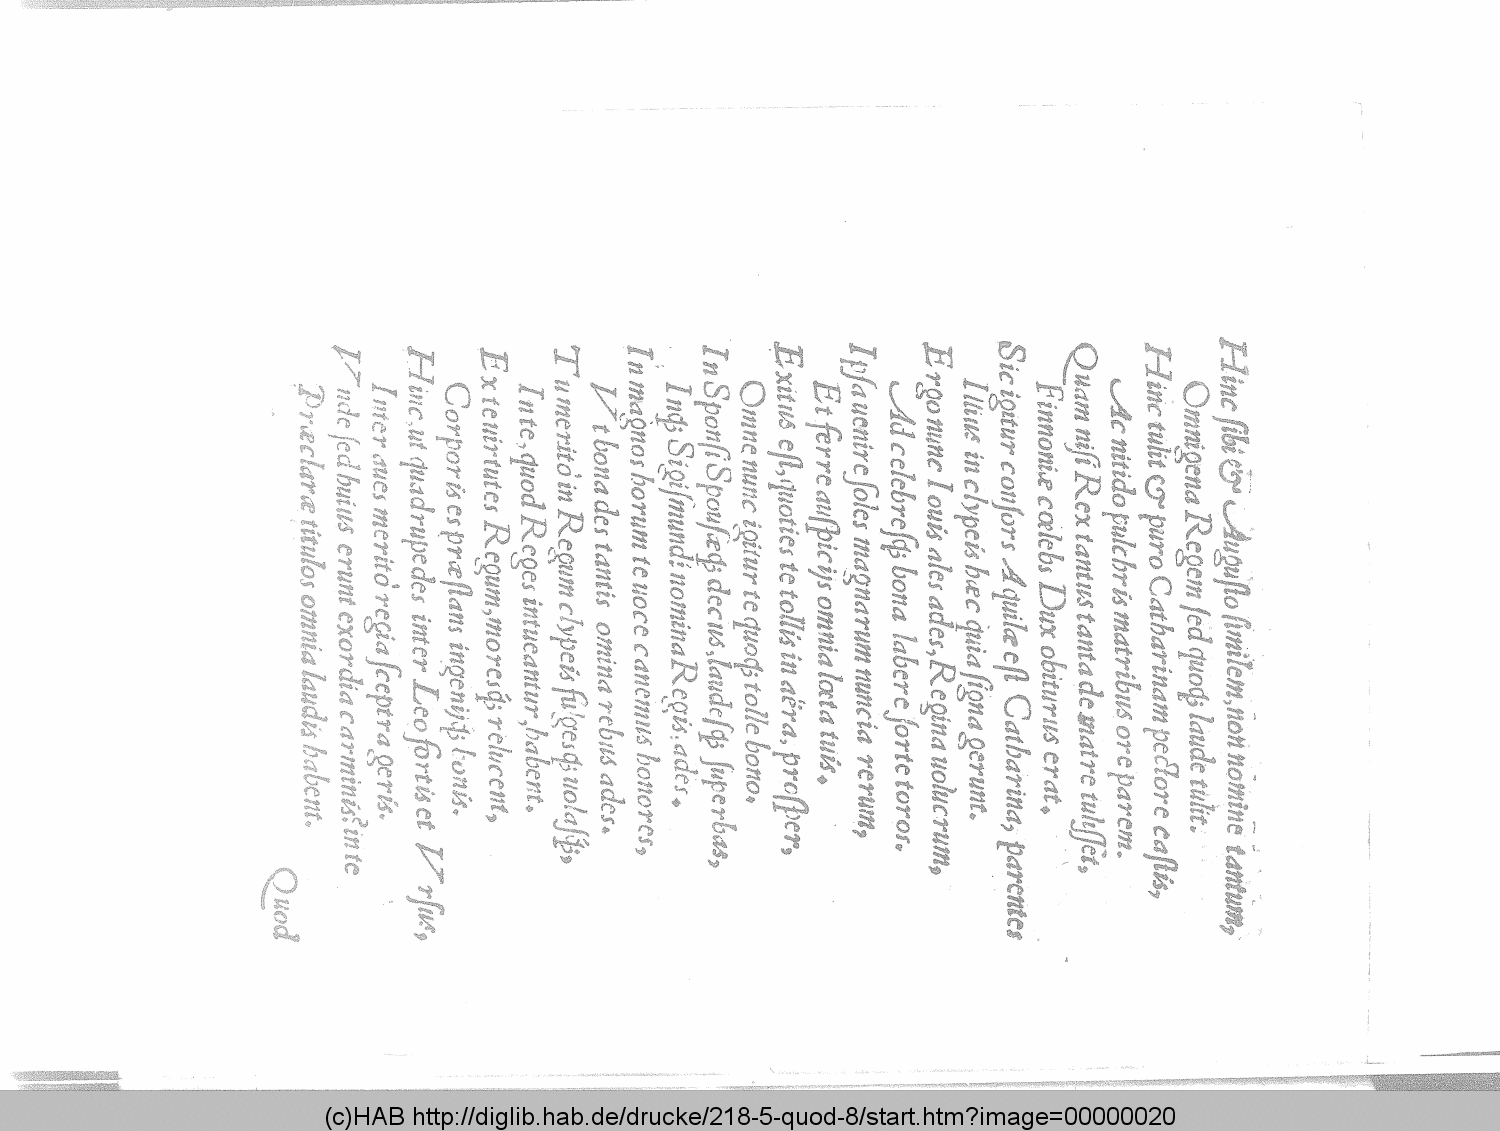 Hinc ſibi & Auguſto ſimilem, non nomine tantum,
Omnigena Regem ſed quoqꝫ laude tulit.
Hinc tulit & puro Catharinam pectore caſtis,
Ac nitido pulchris matribus ore parem.
Quam niſi Rex tantus tanta de matre tuliſſet,
Finnoniæ cœlebs Dux obiturus erat.
Sic igitur conſors Aquilæ eſt Catharina, parentes
Illius in clypeis hæc quia ſigna gerunt.
Ergo nunc Iouis ales ades, Regina uolucrum,
Ad celebreſqꝫ bona labere ſorte toros.
Ipſa uenire ſoles magnarum nuncia rerum,
Et ferre auſpicijs omnia læta tuis.
Exitus eſt, quoties te tollis in aëra, proſper,
Omne nunc igitur te quoqꝫ tolle bono.
In Sponſi Sponſæqꝫ decus, laudeſqꝫ ſuperbas,
Inqꝫ Sigiſmundi nomina Regis, ades.
In magnos horum te uoce canemus honores,
Vt bona des tantis omina rebus ades.
Tu meritò in Regum clypeis fulgesqꝫ uolaſqꝫ,
In te, quod Reges intueantur, habent.
Ex te uirtutes Regum, moresqꝫ relucent,
Corporis es præſtans ingenijqꝫ bonis.
Hinc, ut quadrupedes inter Leo fortis et Vrſus,
Inter aues meritò regia ſceptra geris.
Vnde ſed huius erunt exordia carminis? in te
Præclaræ titulos omnia laudis habent.
Quod
(c)HAB http://diglib.hab.de/drucke/218-5-quod-8/start.htm?image=00000020